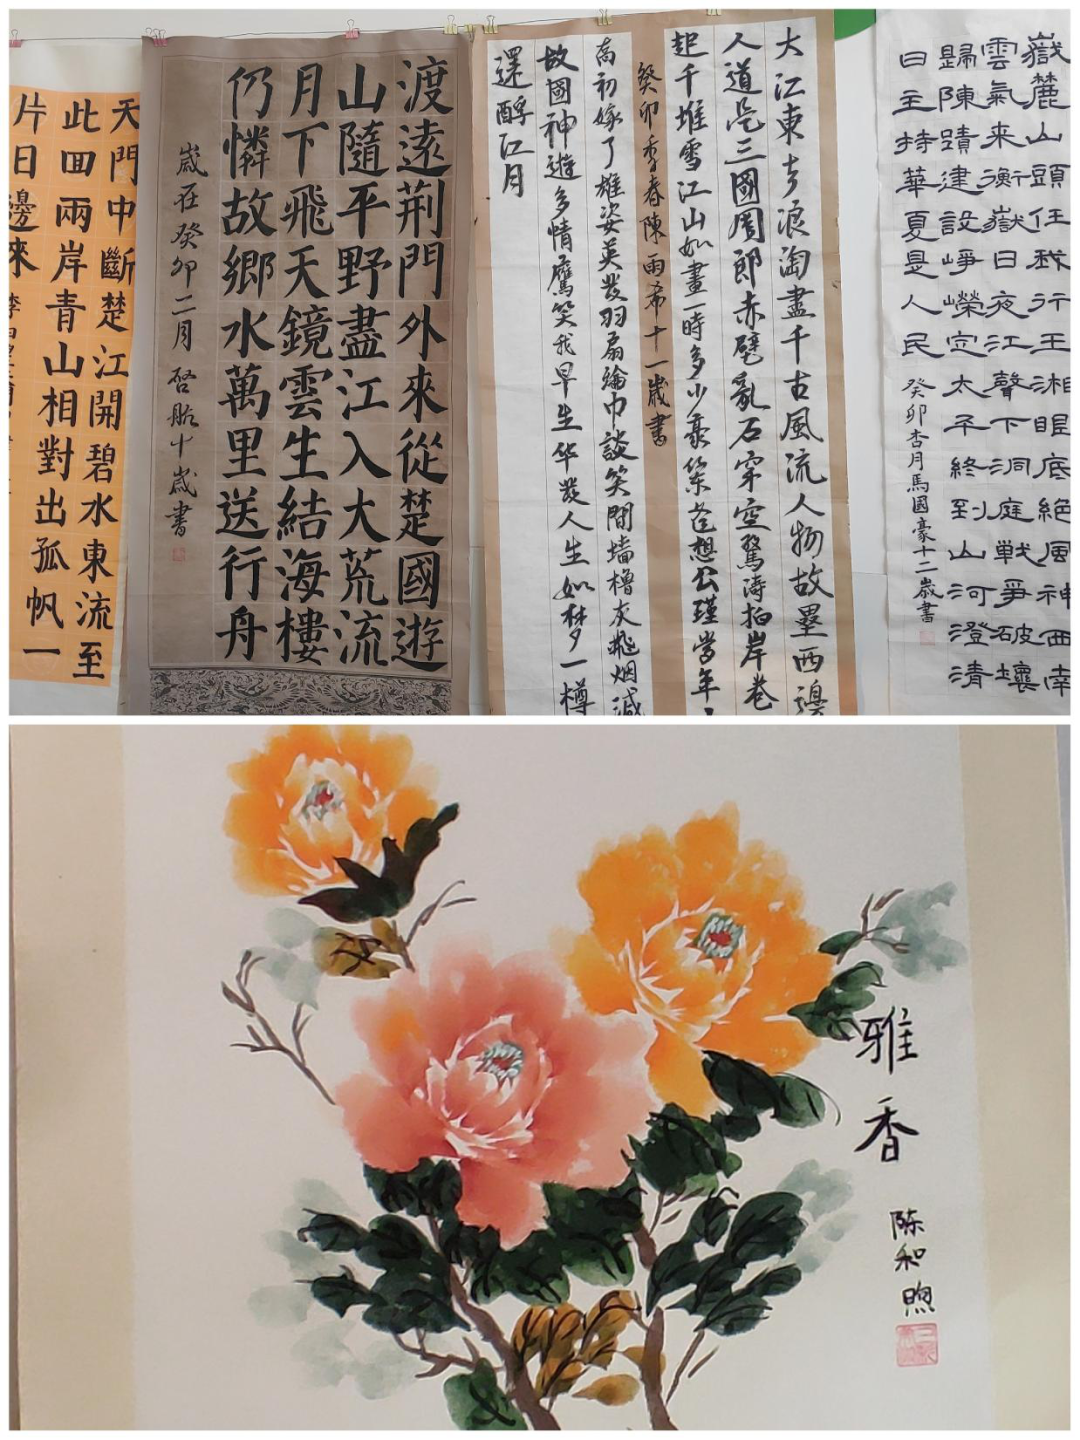 天門中斷楚江開碧水東流至
此回兩岸青山相對出孤帆一
片日邊來
渡遠荆門外來從楚國遊
山隨平野盡江入大荒流
月下飛天鏡雲生結海樓
仍憐故鄉水萬里送行舟
歲在癸卯二月啓航十歲書
大江東去浪淘盡千古風流人物故壘西邊
人道是三國周郎赤壁亂石穿空驚涛拍岸卷
起千堆雪江山如畫一時多少豪傑遙想公瑾當年
癸卯季春陳雨希十一歲書
喬初嫁了雄姿英發羽扇綸巾談笑間墙櫓灰飛烟滅
故國神遊多情應笑我早生华發人生如梦一樽
還酹江月
嶽麓山頭任我行王湘眼底絕風神西南
雲氣來衡嶽日夜江聲下洞庭戰爭破壞
歸陳蹟建設崢嶸定太平終到山河澄清
日主持華夏是人民
癸卯杏月馬國豪十二歲書
雅香
陈和煦